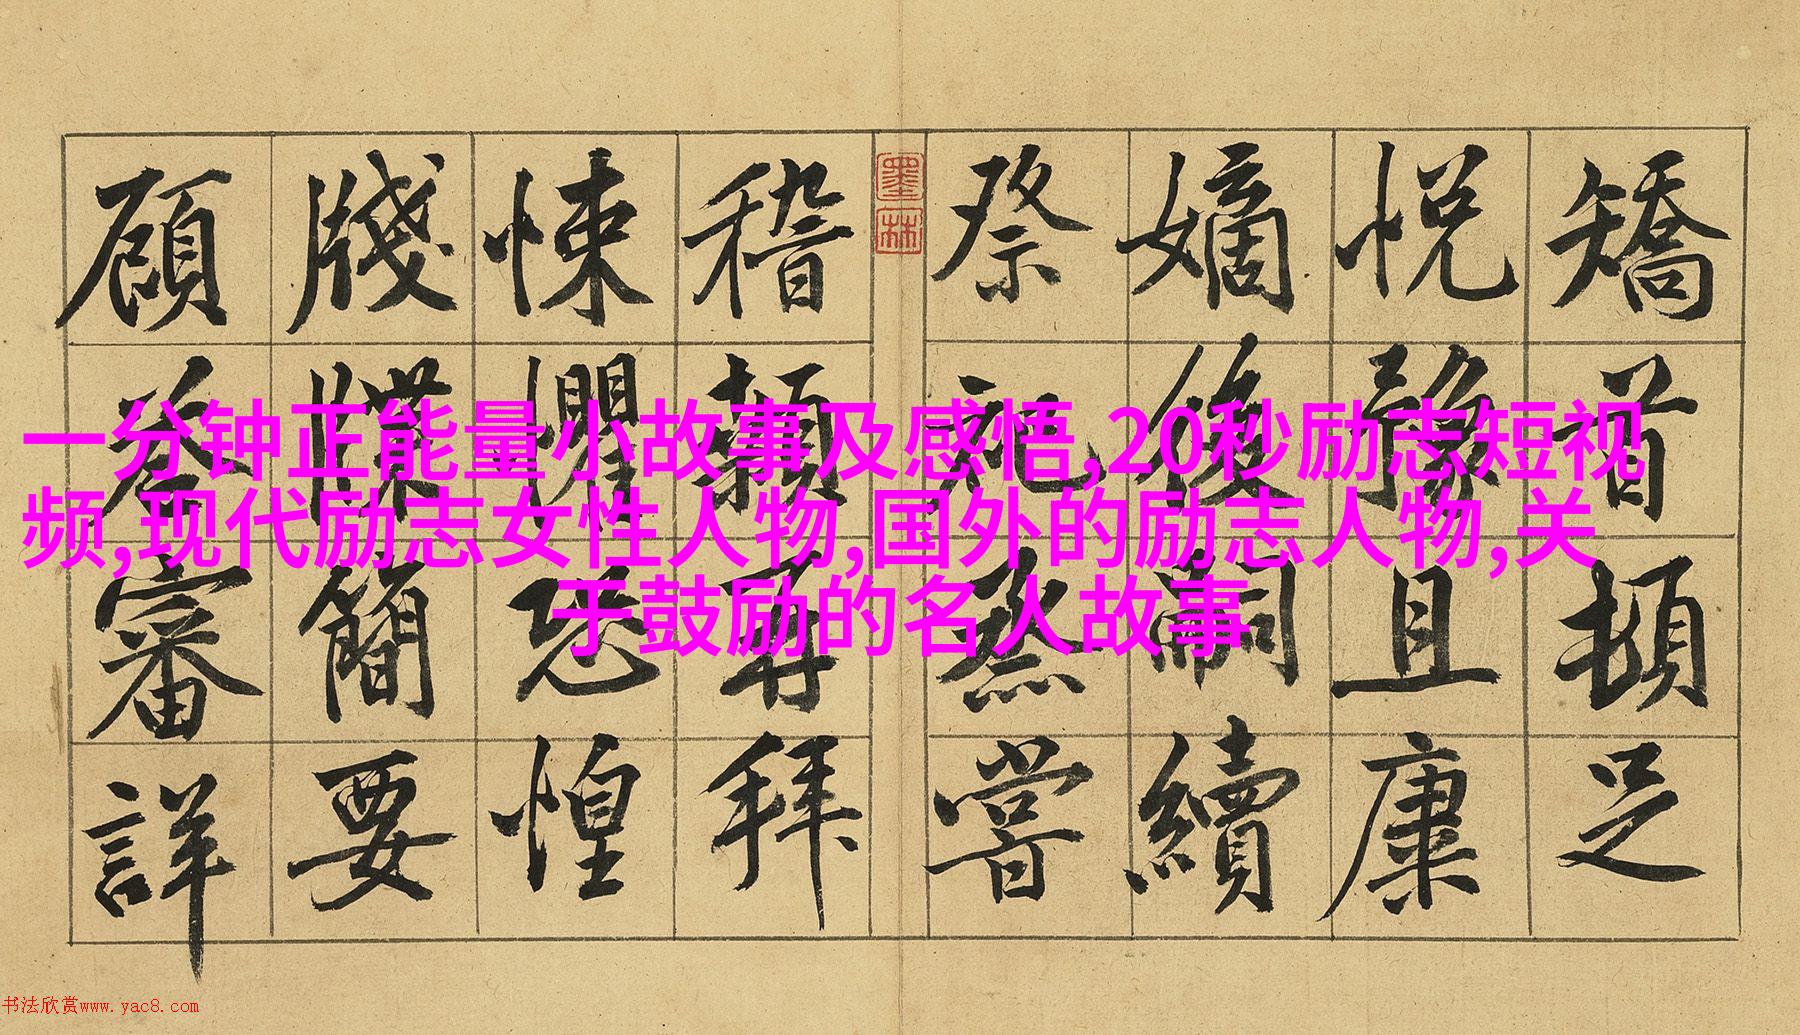 一分钟正能量小故事及感悟,20秒励志短视
频,现代励志女性人物,国外的励志人物,关
于鼓励的名人故事
矯首頓足
悅豫且康
嫡後嗣續
祭祀蒸嘗
墨林
稽顙再拜
悚懼恐惶
牋牒簡要
顧荅審詳
书法欣赏www.yac8.com